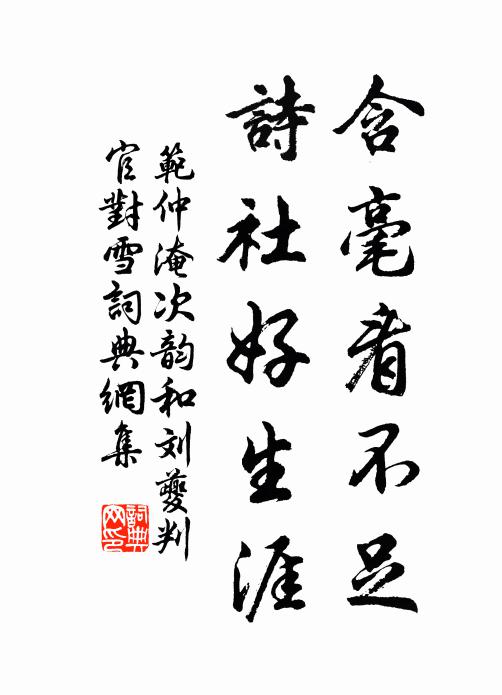 含毫看不足
詩社好生涯
範仲淹次韵和刘夔判
官對雪詞典網集
詞典
网印